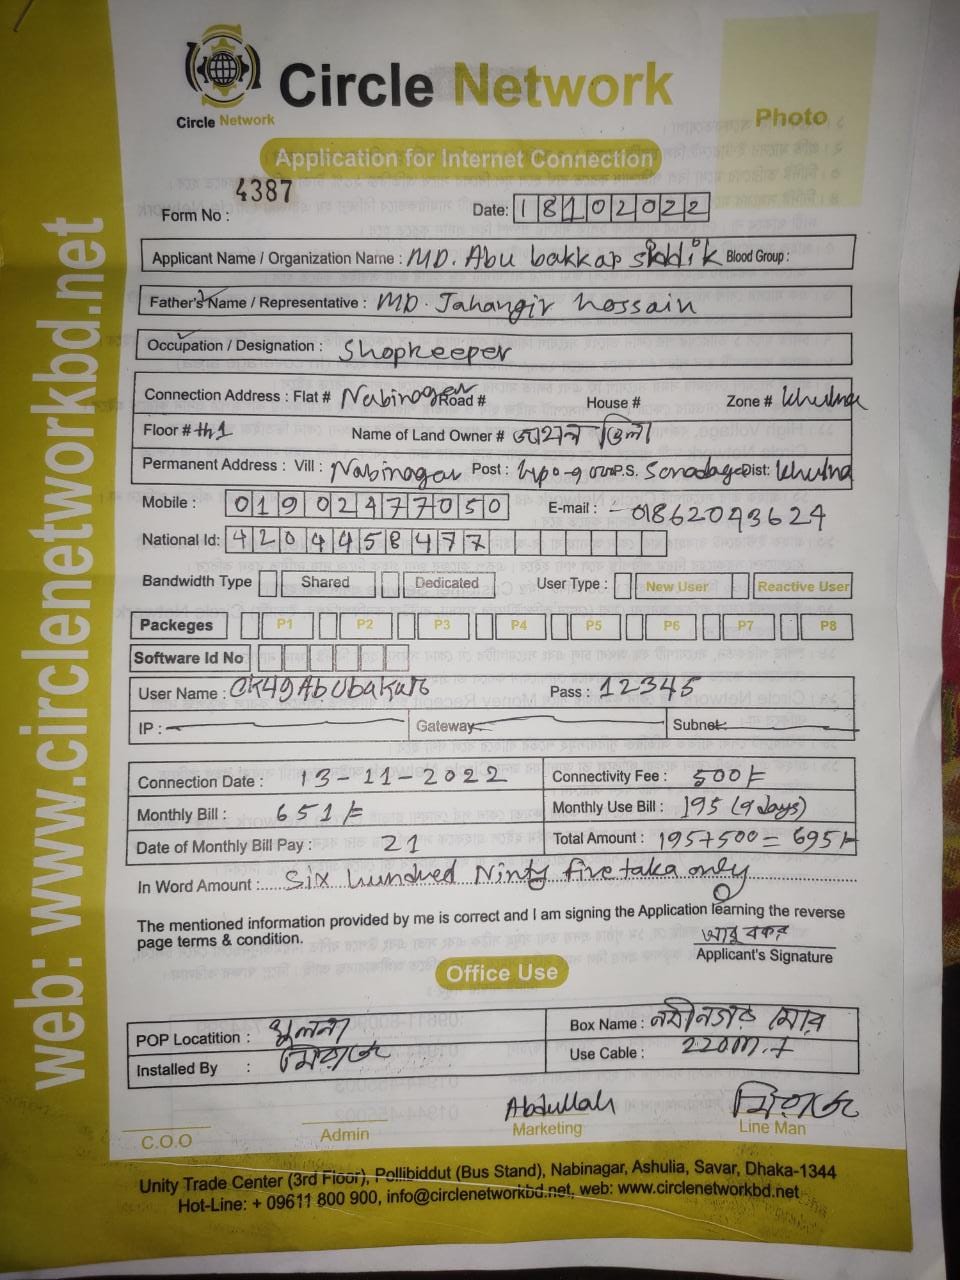 Circle Network
Circle Network
Photo
Application for Internet Connection
4387
Form No :
Date: 18102022
Applicant Name / Organization Name : MD. Abu bakkar siddik Blood Group :
Father's Name / Representative : MD. Jahangir hossain
Occupation / Designation : Shopkeeper
Connection Address : Flat # Nabinogar Road # House # Zone # khulna
Floor # th1 Name of Land Owner #
Permanent Address : Vill : Nabinagar Post : P.S. Dist: khulna
Mobile : 01902477050 E-mail : - 01862043624
National Id: 4204458477
Bandwidth Type Shared Dedicated User Type : New User Reactive User
Packeges P1 P2 P3 P4 P5 P6 P7 P8
Software Id No
User Name : Pass : 12345
IP : Gateway Subnet
Connection Date : 13-11-2022 Connectivity Fee : 500/=
Monthly Bill : 651/= Monthly Use Bill : 195 (9 days)
Date of Monthly Bill Pay : 21 Total Amount : 195+500= 695/=
In Word Amount : Six hundred Ninty five taka only
The mentioned information provided by me is correct and I am signing the Application learning the reverse
page terms & condition.
আবু বকর
Applicant's Signature
Office Use
POP Locatition : খুলনা Box Name : নবীনগর মোর
Installed By : মিরাজ Use Cable : 220m.
Abdullah মিরাজ
C.O.O Admin Marketing Line Man
Unity Trade Center (3rd Floor), Pollibiddut (Bus Stand), Nabinagar, Ashulia, Savar, Dhaka-1344
Hot-Line: + 09611 800 900, info@circlenetworkbd.net, web: www.circlenetworkbd.net
web: www.circlenetworkbd.net